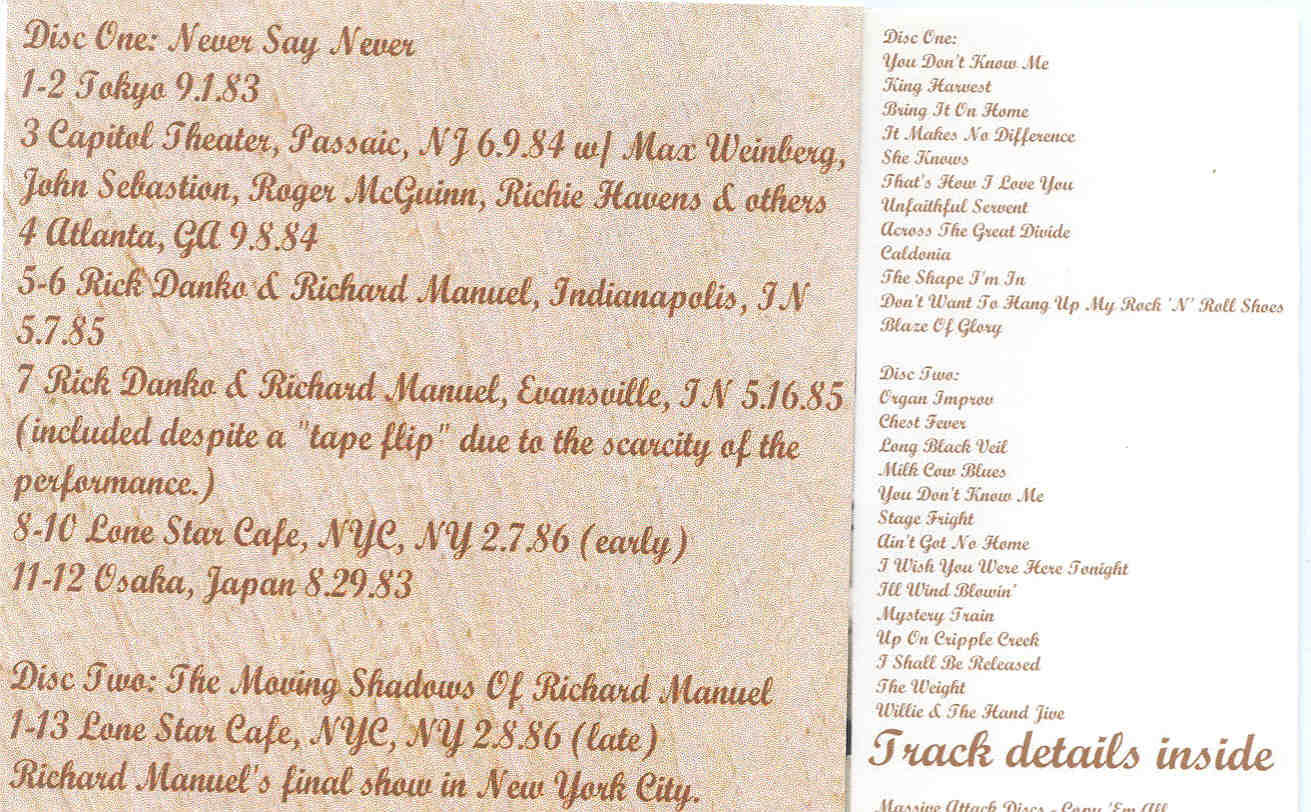 Disc One: Never Say Never
1-2 Tokyo 9.1.83
3 Capitol Theater, Passaic, NJ 6.9.84 w/ Max Weinberg,
John Sebastion, Roger McGuinn, Richie Havens & others
4 Atlanta, GA 9.8.84
5-6 Rick Danko & Richard Manuel, Indianapolis, IN
5.7.85
7 Rick Danko & Richard Manuel, Evansville, IN 5.16.85
(included despite a "tape flip" due to the scarcity of the
performance.)
8-10 Lone Star Cafe, NYC, NY 2.7.86 (early)
11-12 Osaka, Japan 8.29.83
Disc Two: The Moving Shadows Of Richard Manuel
1-13 Lone Star Cafe, NYC, NY 2.8.86 (late)
Richard Manuel's final show in New York City.
Disc One:
You Don't Know Me
King Harvest
Bring It On Home
It Makes No Difference
She Knows
That's How I Love You
Unfaithful Servent
Across The Great Divide
Caldonia
The Shape I'm In
Don't Want To Hang Up My Rock 'N' Roll Shoes
Blaze Of Glory
Disc Two:
Organ Improv
Chest Fever
Long Black Veil
Milk Cow Blues
You Don't Know Me
Stage Fright
Ain't Got No Home
I Wish You Were Here Tonight
Ill Wind Blowin'
Mystery Train
Up On Cripple Creek
I Shall Be Released
The Weight
Willie & The Hand Jive
Track details inside
Massive Attack Discs - Copy 'Em All